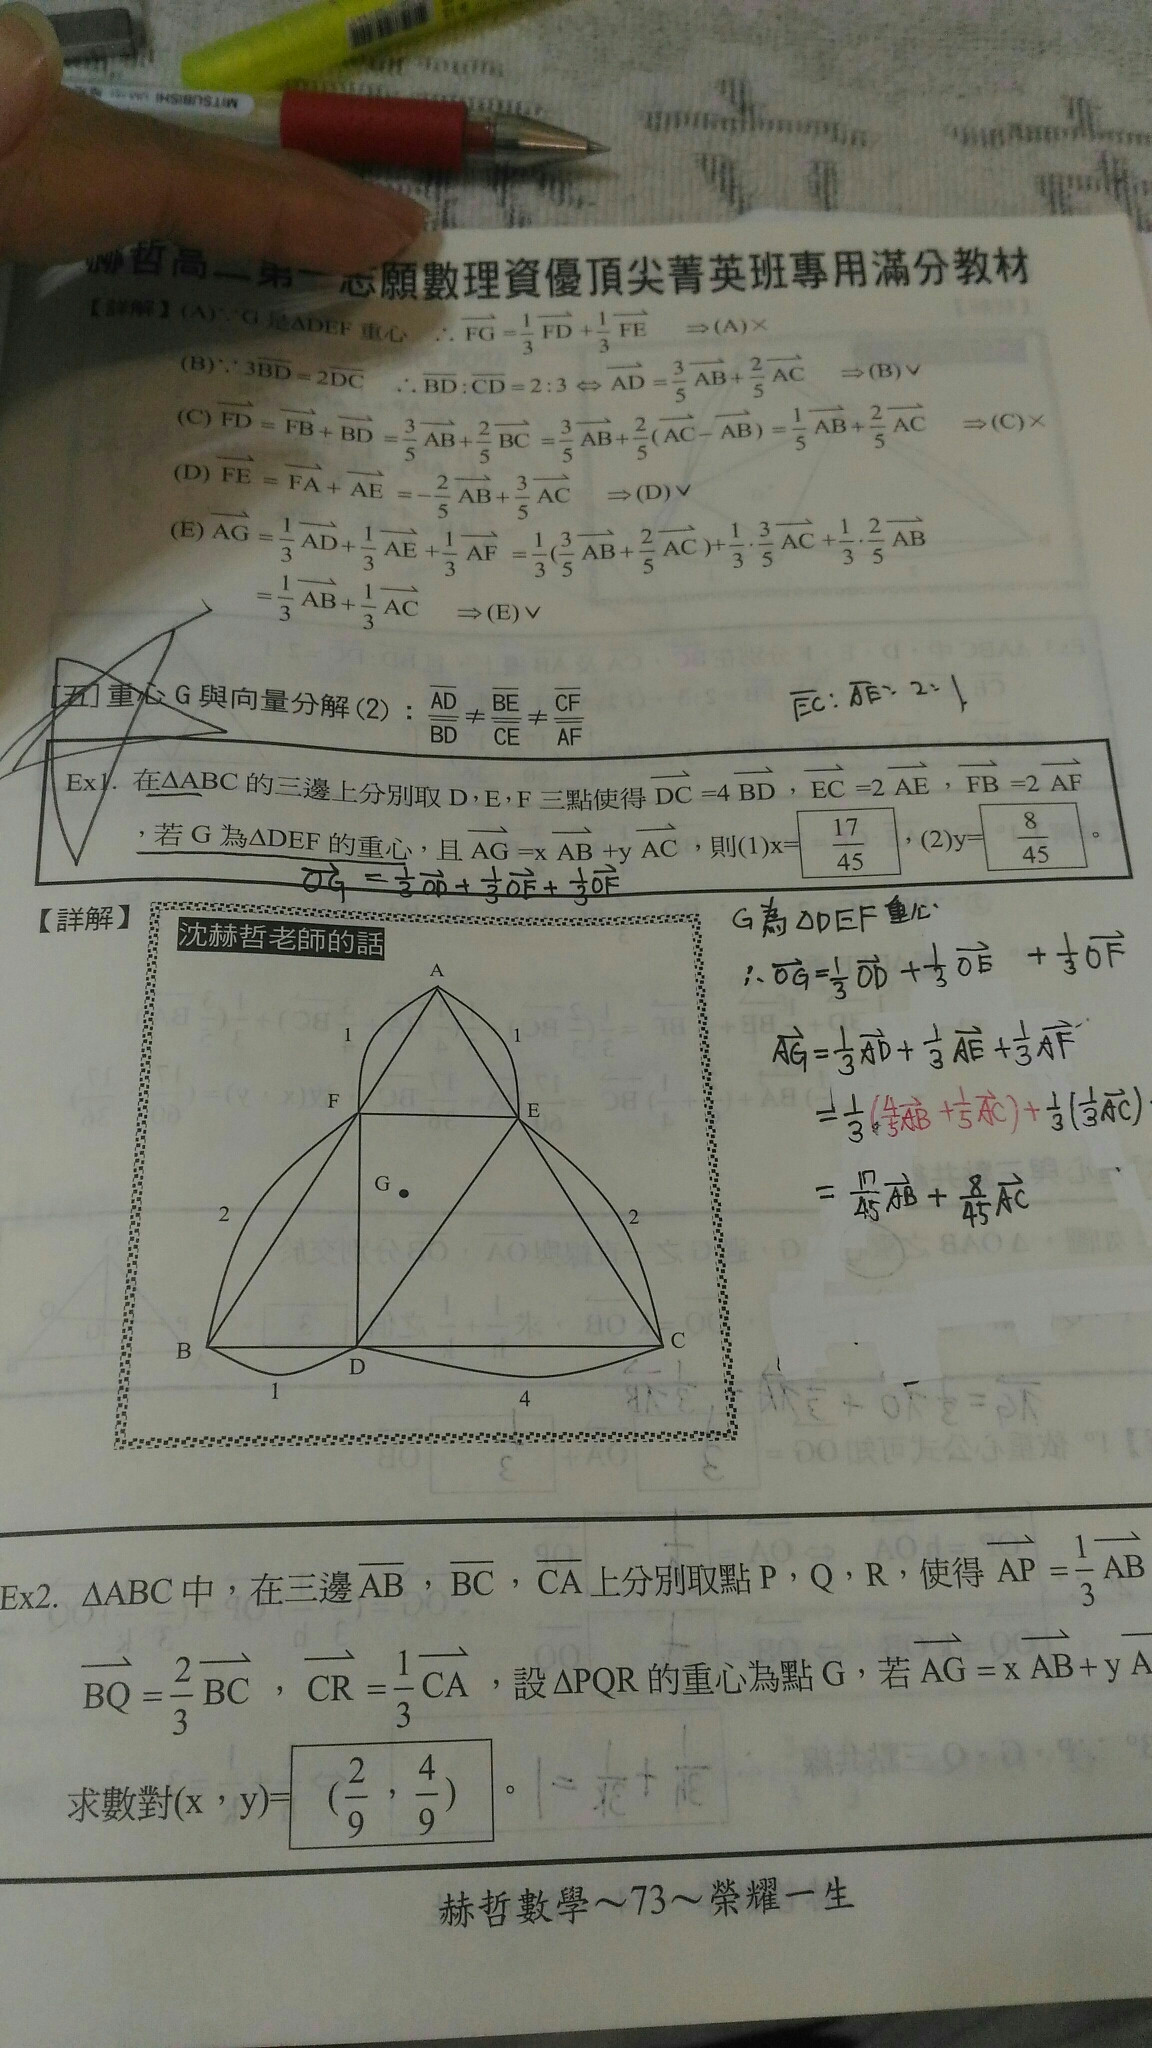 MITSUBISHI
哲高二第一志願數理資優頂尖菁英班專用滿分教材
【詳解】(A)∵G是ΔDEF重心 ∴FG⃗=1/3FD⃗+1/3FE⃗ ⇒(A)×
(B)∵3BD⃗=2DC⃗ ∴BD̅:CD̅=2:3⇔AD⃗=3/5AB⃗+2/5AC⃗ ⇒(B)∨
(C)FD⃗=FB⃗+BD⃗=3/5AB⃗+2/5BC⃗=3/5AB⃗+2/5(AC⃗-AB⃗)=1/5AB⃗+2/5AC⃗ ⇒(C)×
(D)FE⃗=FA⃗+AE⃗=-2/5AB⃗+3/5AC⃗ ⇒(D)∨
(E)AG⃗=1/3AD⃗+1/3AE⃗+1/3AF⃗=1/3(3/5AB⃗+2/5AC⃗)+1/3·3/5AC⃗+1/3·2/5AB⃗
=1/3AB⃗+1/3AC⃗ ⇒(E)∨
[五]重心G與向量分解(2):AD̅/BD̅≠BE̅/CE̅≠CF̅/AF̅
EC̅:AE̅=2:1
Ex1. 在ΔABC的三邊上分別取D,E,F三點使得DC⃗=4BD⃗,EC⃗=2AE⃗,FB⃗=2AF⃗
,若G為ΔDEF的重心,且AG⃗=xAB⃗+yAC⃗,則(1)x=17/45,(2)y=8/45。
OG⃗=1/3OD⃗+1/3OE⃗+1/3OF⃗
【詳解】
沈赫哲老師的話
A
1
1
F
E
G
2
2
B
D
C
1
4
G為ΔDEF重心
∴OG⃗=1/3OD⃗+1/3OE⃗+1/3OF⃗
AG⃗=1/3AD⃗+1/3AE⃗+1/3AF⃗
=1/3(4/5AB⃗+1/5AC⃗)+1/3(1/3AC⃗)
=17/45AB⃗+8/45AC⃗
Ex2. ΔABC中,在三邊AB̅,BC̅,CA̅上分別取點P,Q,R,使得AP⃗=1/3AB⃗
BQ⃗=2/3BC⃗,CR⃗=1/3CA⃗,設ΔPQR的重心為點G,若AG⃗=xAB⃗+yA
求數對(x,y)=(2/9,4/9)。
赫哲數學~73~榮耀一生